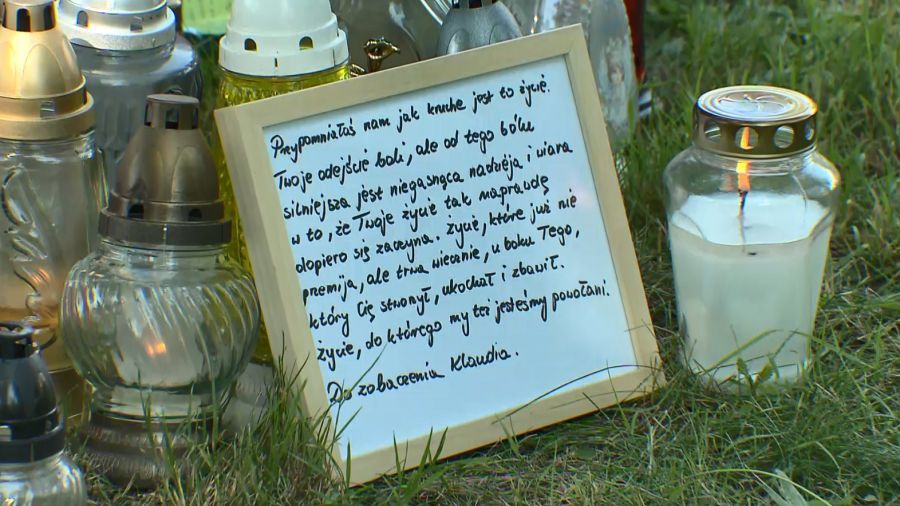 Przypomniałaś nam jak kruche jest to życie.
Twoje odejście boli, ale od tego bólu
silniejsza jest niegasnąca nadzieja i wiara
w to, że Twoje życie tak naprawdę
dopiero się zaczyna. Życie, które już nie
przemija, ale trwa wiecznie, u boku Tego,
który Cię stworzył, ukochał i zbawił.
Życie, do którego my też jesteśmy powołani.
Do zobaczenia Klaudia.